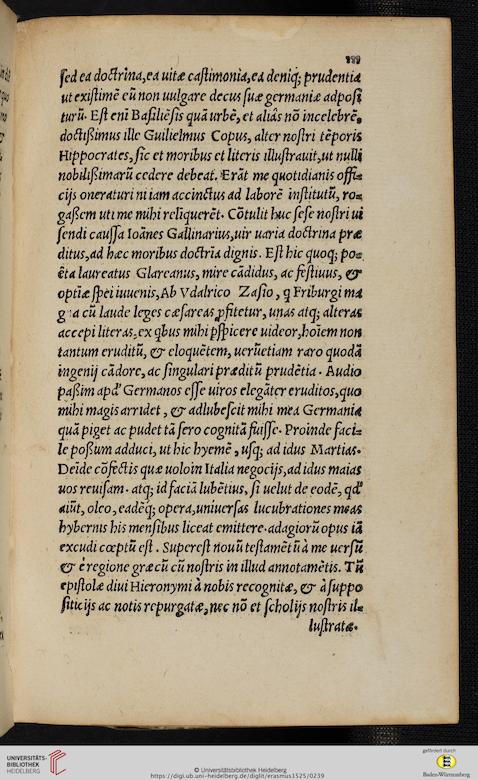 ſed ea doctrina, ea uitæ caſtimonia, ea deniq; prudentia
ut exiſtimē eū non uulgare decus ſuæ germaniæ adpoſi
turū. Eſt eni Baſiliēſis quā urbē, et aliās nō incelebrē,
doctiſsimus ille Guilielmus Copus, alter noſtri tēporis
Hippocrates, ſic et moribus et literis illuſtrauit, ut nulli
nobiliſsimarū cedere debeat. Erāt me quotidianis offi=
cijs oneraturi ni iam accinctus ad laborē inſtitutū, ro=
gaſſem uti me mihi reliquerēt. Cōtulit huc ſeſe noſtri ui
ſendi cauſſa Ioānes Gallinarius, uir uaria doctrina præ
ditus, ad hæc moribus doctrīa dignis. Eſt hic quoq; po=
ēta laureatus Glareanus, mire cādidus, ac feſtiuus, &
optīæ ſpei iuuenis, Ab Vdalrico Zaſio, q Friburgi ma
g a cū laude leges cæſareas ꝓfitetur, unas atq; alteras
accepi literas, ex qbus mihi pſpicere uideor, hoīem non
tantum eruditū, & eloquētem, uerūetiam raro quodā
ingenij cādore, ac ſingulari præditū prudētia. Audio
paſsim apd' Germanos eſſe uiros elegāter eruditos, quo
mihi magis arridet, & adlubeſcit mihi mea Germania
quā piget ac pudet tā ſero cognitā fuiſſe. Proinde faci=
le poſſum adduci, ut hic hyemē, uſq; ad idus Martias.
Deīde cōfectis quæ uolo in Italia negocijs, ad idus maias
uos reuiſam. atq; id faciā lubētius, ſi uelut de eodē, qd'
aiūt, oleo, eadēq; opera, uniuerſas lucubrationes meas
hybernis his menſibus liceat emittere. adagiorū opus iā
excudi cœptū eſt. Supereſt nouū teſtamētū à me uerſū
& è regione græcū cū noſtris in illud annotamētis. Tū
epiſtolæ diui Hieronymi à nobis recognitæ, & à ſuppo
ſiticijs ac notis repurgatæ, nec nō et ſcholijs noſtris il=
luſtratæ.
UNIVERSITÄTS-
BIBLIOTHEK
HEIDELBERG
© Universitätsbibliothek Heidelberg
https://digi.ub.uni-heidelberg.de/diglit/erasmus1525/0239
gefördert durch
Baden-Württemberg